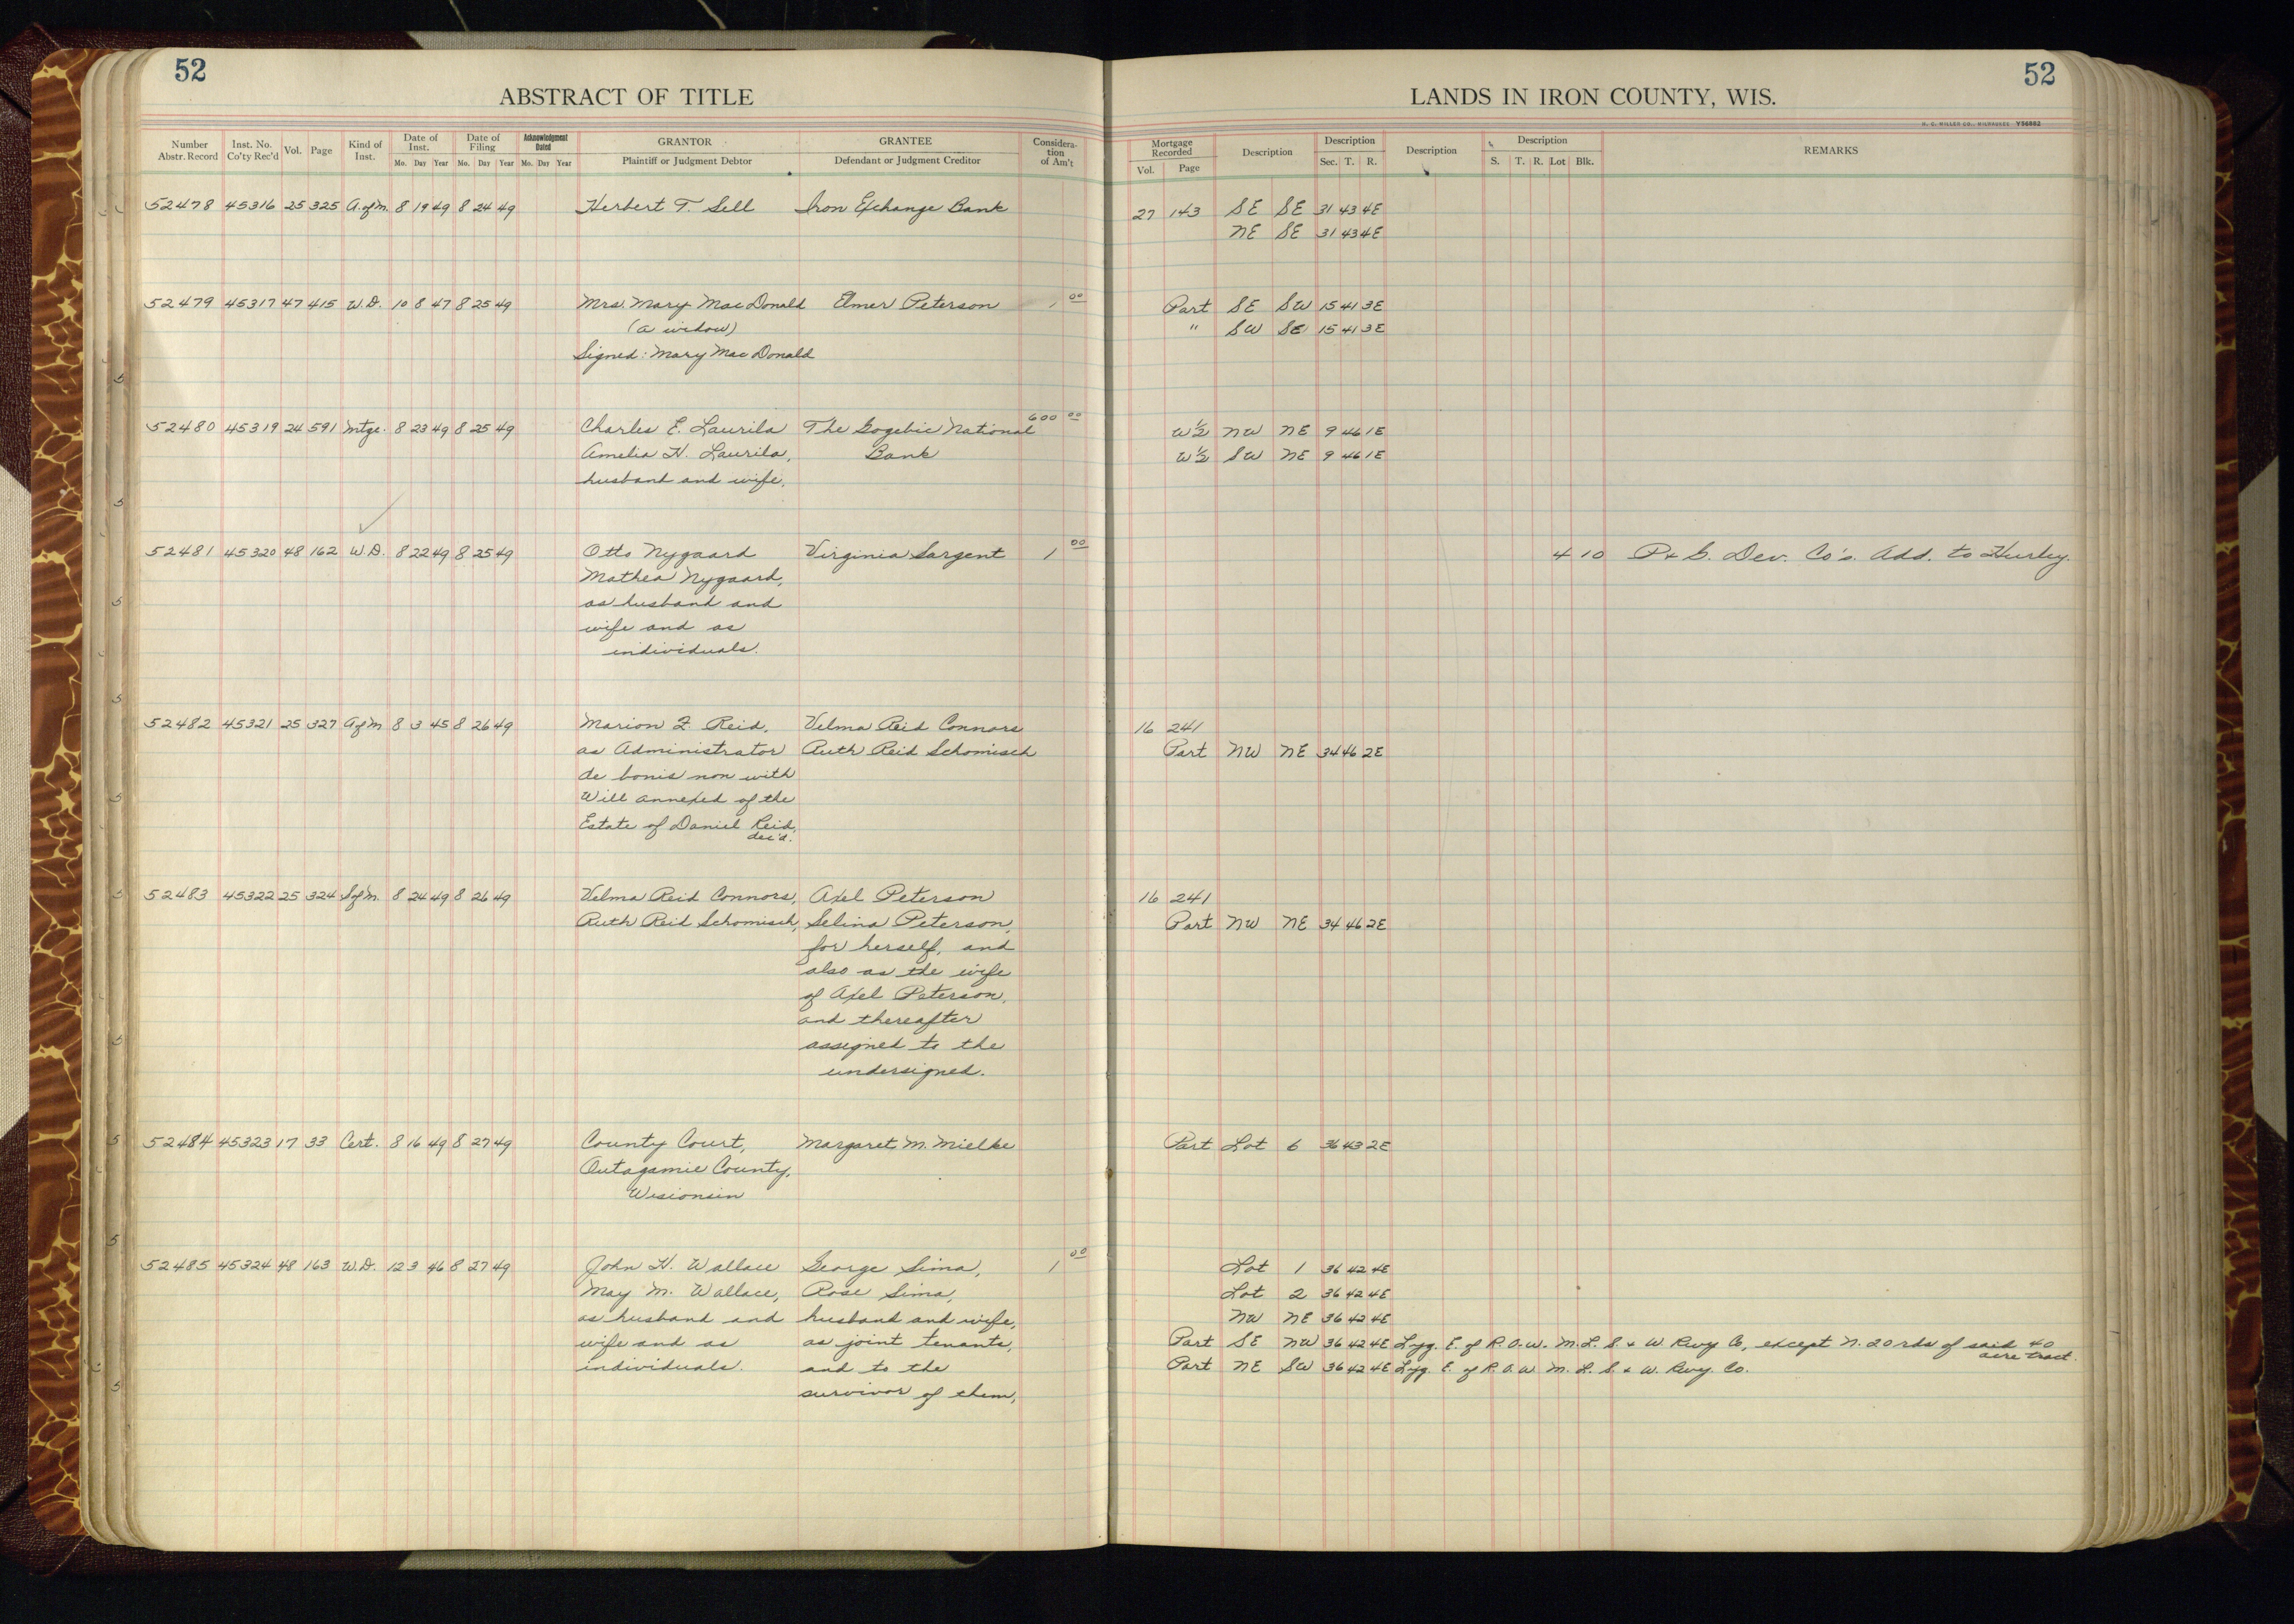 52
ABSTRACT OF TITLE
Number Abstr. Record
Inst. No. Co'ty Rec'd
Vol.
Page
Kind of Inst.
Date of Inst.
Mo. Day Year
Date of Filing
Mo. Day Year
Acknowledgment Dated
Mo. Day Year
GRANTOR
Plaintiff or Judgment Debtor
GRANTEE
Defendant or Judgment Creditor
Considera-
tion
of Am't
52478 45316 25 325 A. of M. 8 19 49 8 24 49 Herbert T. Sell Iron Exchange Bank
52479 45317 47 415 W.D. 10 8 47 8 25 49 Mrs. Mary MacDonald Elmer Peterson 1 00
(a widow)
Signed: Mary MacDonald
52480 45319 24 591 Mtge. 8 23 49 8 25 49 Charles E. Laurila The Gogebic National 600 00
Amelia H. Laurila, Bank
husband and wife,
52481 45320 48 162 W.D. 8 22 49 8 25 49 Otto Nygaard Virginia Sargent 1 00
Mathea Nygaard,
as husband and
wife and as
individuals.
52482 45321 25 327 A of M 8 3 45 8 26 49 Marion F. Reid, Velma Reid Connors
as Administrator Ruth Reid Schomisch
de bonis non with
Will annexed of the
Estate of Daniel Reid,
dec'd.
52483 45322 25 324 S of M. 8 24 49 8 26 49 Velma Reid Connors, Axel Peterson
Ruth Reid Schomisch, Selina Peterson,
for herself, and
also as the wife
of Axel Peterson,
and thereafter
assigned to the
undersigned.
52484 45323 17 33 Cert. 8 16 49 8 27 49 County Court, Margaret M. Mielke
Outagamie County,
Wisionsin
52485 45324 48 163 W.D. 12 3 46 8 27 49 John H. Wallace George Sima, 1 00
May M. Wallace, Rose Sima,
as husband and husband and wife,
wife and as as joint tenants,
individuals. and to the
survivor of them,
52
LANDS IN IRON COUNTY, WIS.
H. C. MILLER CO., MILWAUKEE Y56882
Mortgage Recorded
Vol. Page
Description
Description
Sec. T. R.
Description
Description
S. T. R. Lot Blk.
REMARKS
27 143 SE SE 31 43 4E
NE SE 31 43 4E
Part SE SW 15 41 3E
" SW SE 15 41 3E
W½ NW NE 9 46 1E
W½ SW NE 9 46 1E
4 10 P & S. Dev. Co's. Add. to Hurley.
16 241
Part NW NE 34 46 2E
16 241
Part NW NE 34 46 2E
Part Lot 6 36 43 2E
Lot 1 36 42 4E
Lot 2 36 42 4E
NW NE 36 42 4E
Part SE NW 36 42 4E Lyg. E. of R.O.W. M.L.S. & W Rwy Co, except N. 20 rds of said 40
acre tract.
Part NE SW 36 42 4E Lyg. E. of R.O.W. M.L.S. & W. Rwy. Co.